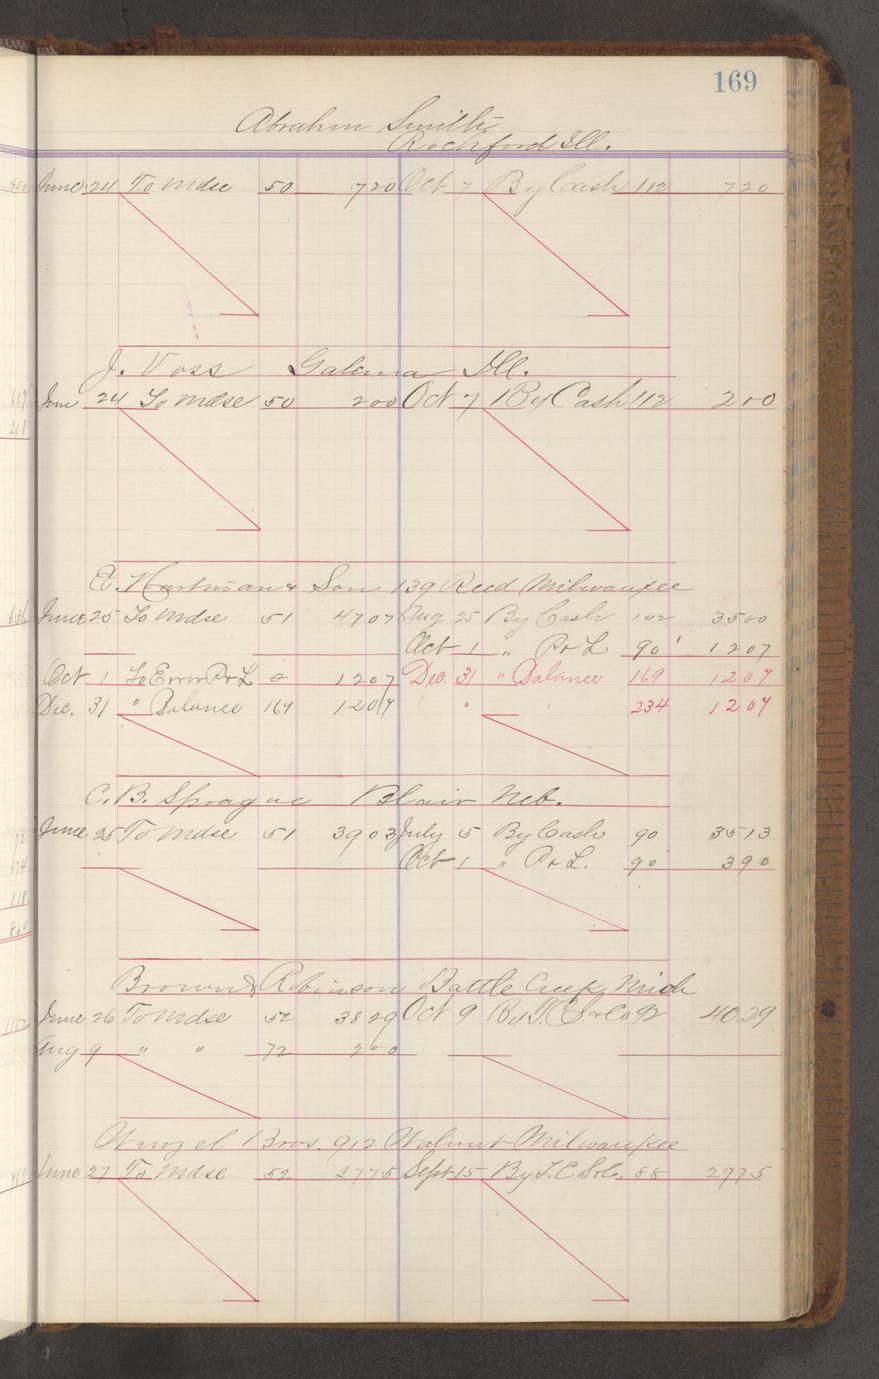 169
Abrahm Smith
Rochford Ill.
June 24 To Mdse 50 7 20 Oct 7 By Cash 112 7 20
J. Voss Galena Ill.
June 24 To Mdse 50 2 00 Oct 7 By Cash 112 2 00
E. Hartman & Son 139 Reed Milwaukee
June 25 To Mdse 51 47 07 Aug 25 By Cash 102 35 00
Oct 1 " P & L 90 12 07
Oct 1 To Error P & L 12 07 Dec. 31 " Balance 169 12 07
Dec. 31 " Balance 169 12 07 " 234 12 07
C. B. Sprague Blair Neb.
June 25 To Mdse 51 39 03 July 5 By Cash 90 35 13
Oct 1 " P & L. 90 3 90
Brown & Robinson Battle Creek Mich
June 26 To Mdse 52 38 29 Oct 9 By & Co 92 40 29
Aug 9 " " 72 2 00
Bros. 912 Walnut Milwaukee
June 27 To Mdse 52 27 75 Sept 15 By 88 27 75